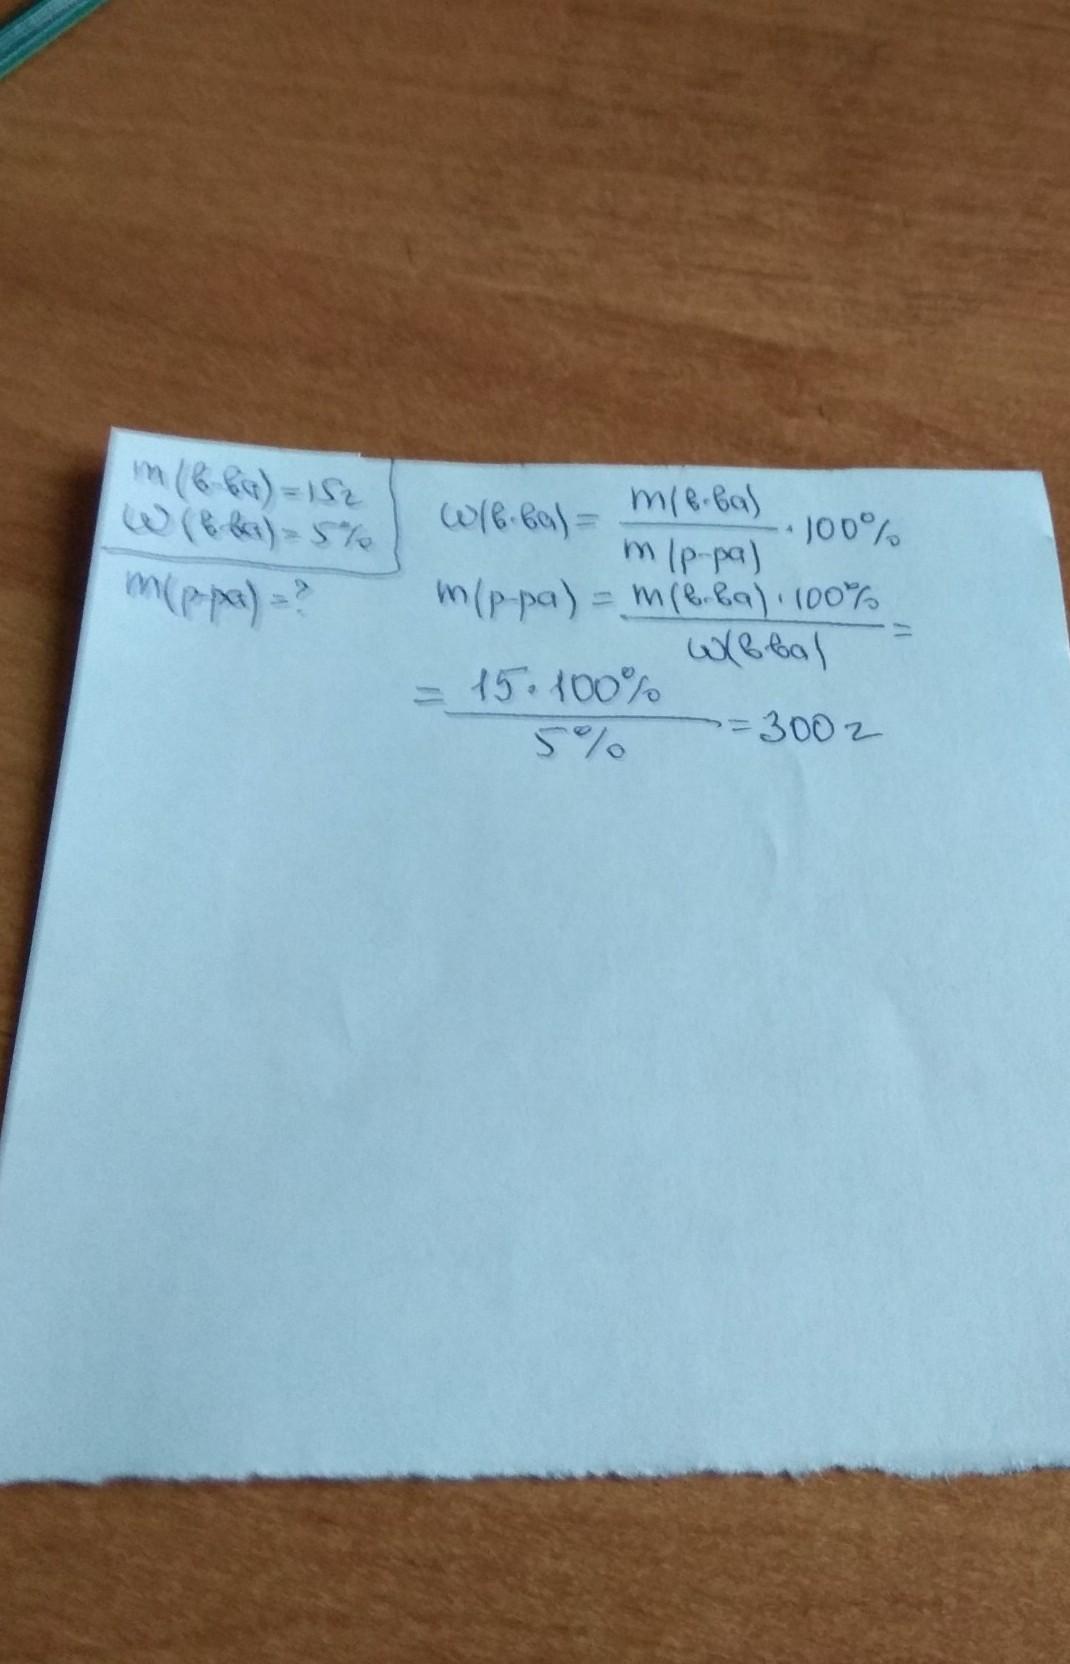 m(в-ва)=15г
ω(в-ва)=5%
m(р-ра)=?
ω(в-ва)= m(в-ва) / m(р-ра) · 100%
m(р-ра) = m(в-ва) · 100% / ω(в-ва) =
= 15 · 100% / 5% = 300г